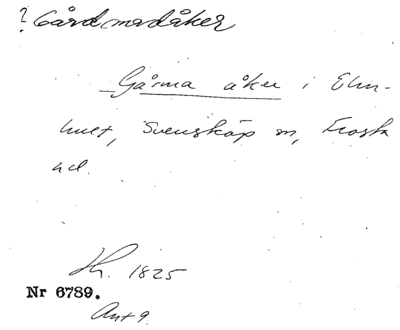 ? Gårdmadåker
Gårma åker i Elm-
hult, Svensköp sn, Frosta
hd.
Kh. 1825
Nr 6789.
Ant 9.